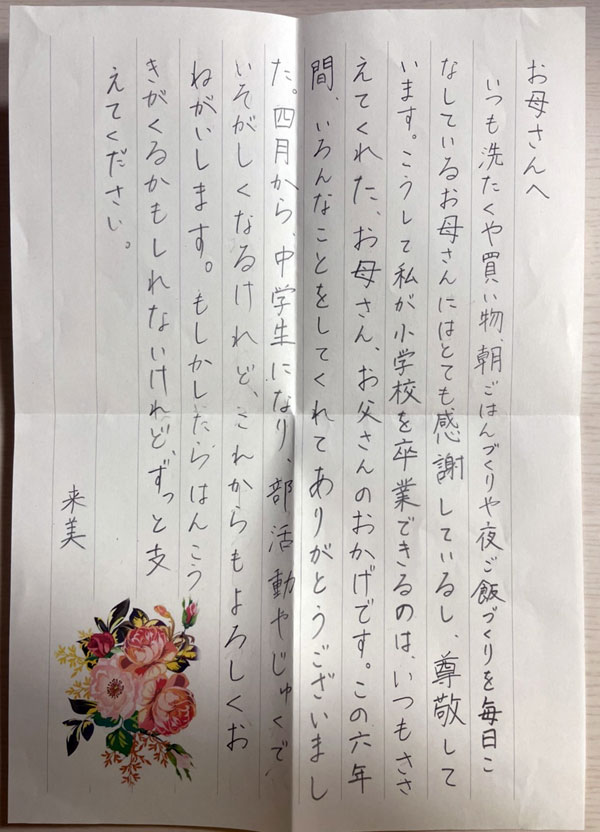 お母さんへ
いつも洗たくや買い物、朝ごはんづくりや夜ご飯づくりを毎日こ
なしているお母さんにはとても感謝しているし、尊敬して
います。こうして私が小学校を卒業できるのは、いつもささ
えてくれた、お母さん、お父さんのおかげです。この六年
間、いろんなことをしてくれてありがとうございまし
た。四月から、中学生になり、部活動やじゅくで
いそがしくなるけれど、これからもよろしくお
ねがいします。もしかしたらはんこう
きがくるかもしれないけれど、ずっと支
えてください。
来美